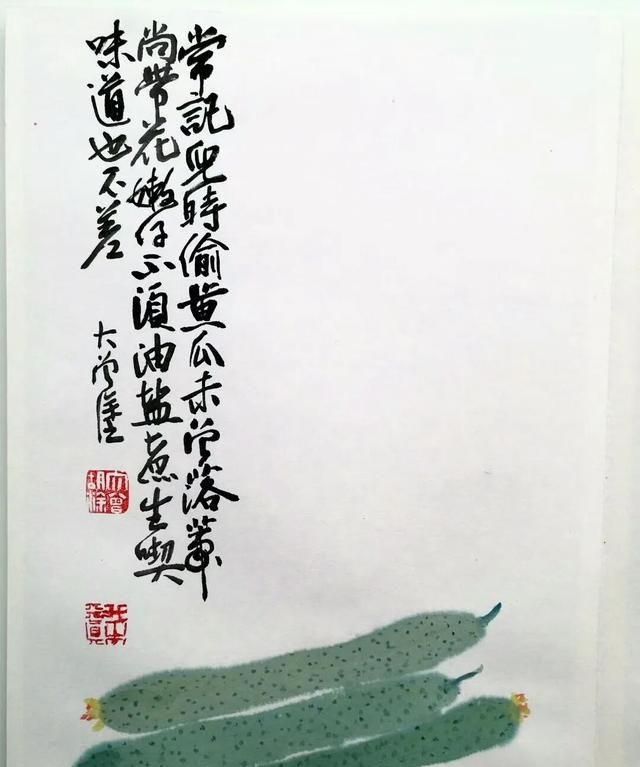 常記兒時偷黄瓜未曾落蒂
尚帶花嫩仔不須油盐煮生喫
味道也不差
大曾